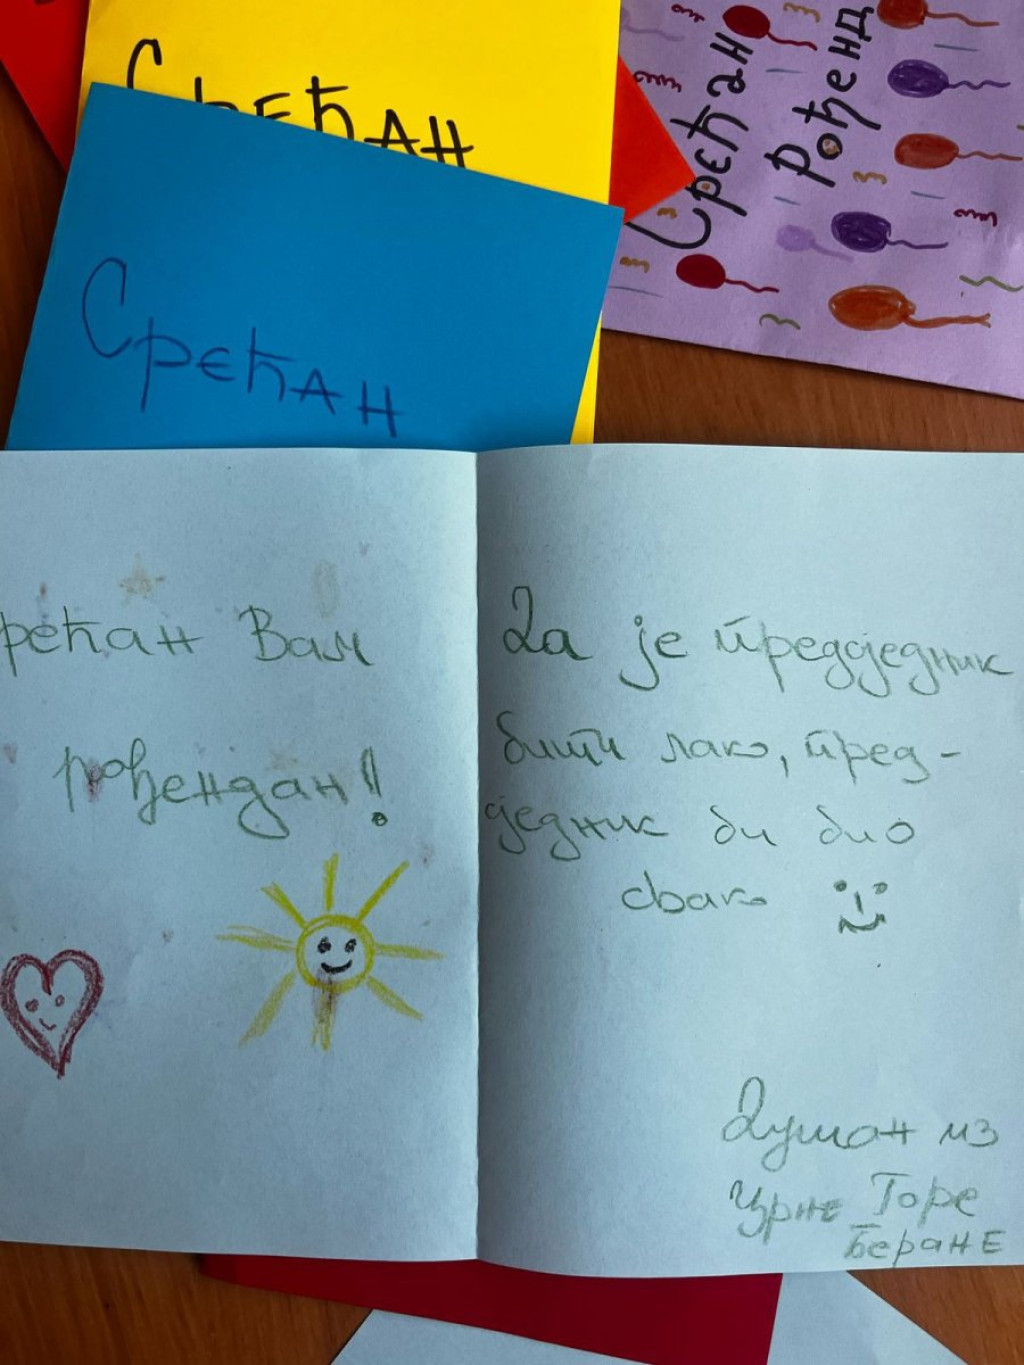 Срећан
Срећан
Рођенд
Срећан
рећан Вам
рођендан!
Да је предсједник
бити лако, пред-
сједник би био
свако
Душан из
Црне Горе
Беране